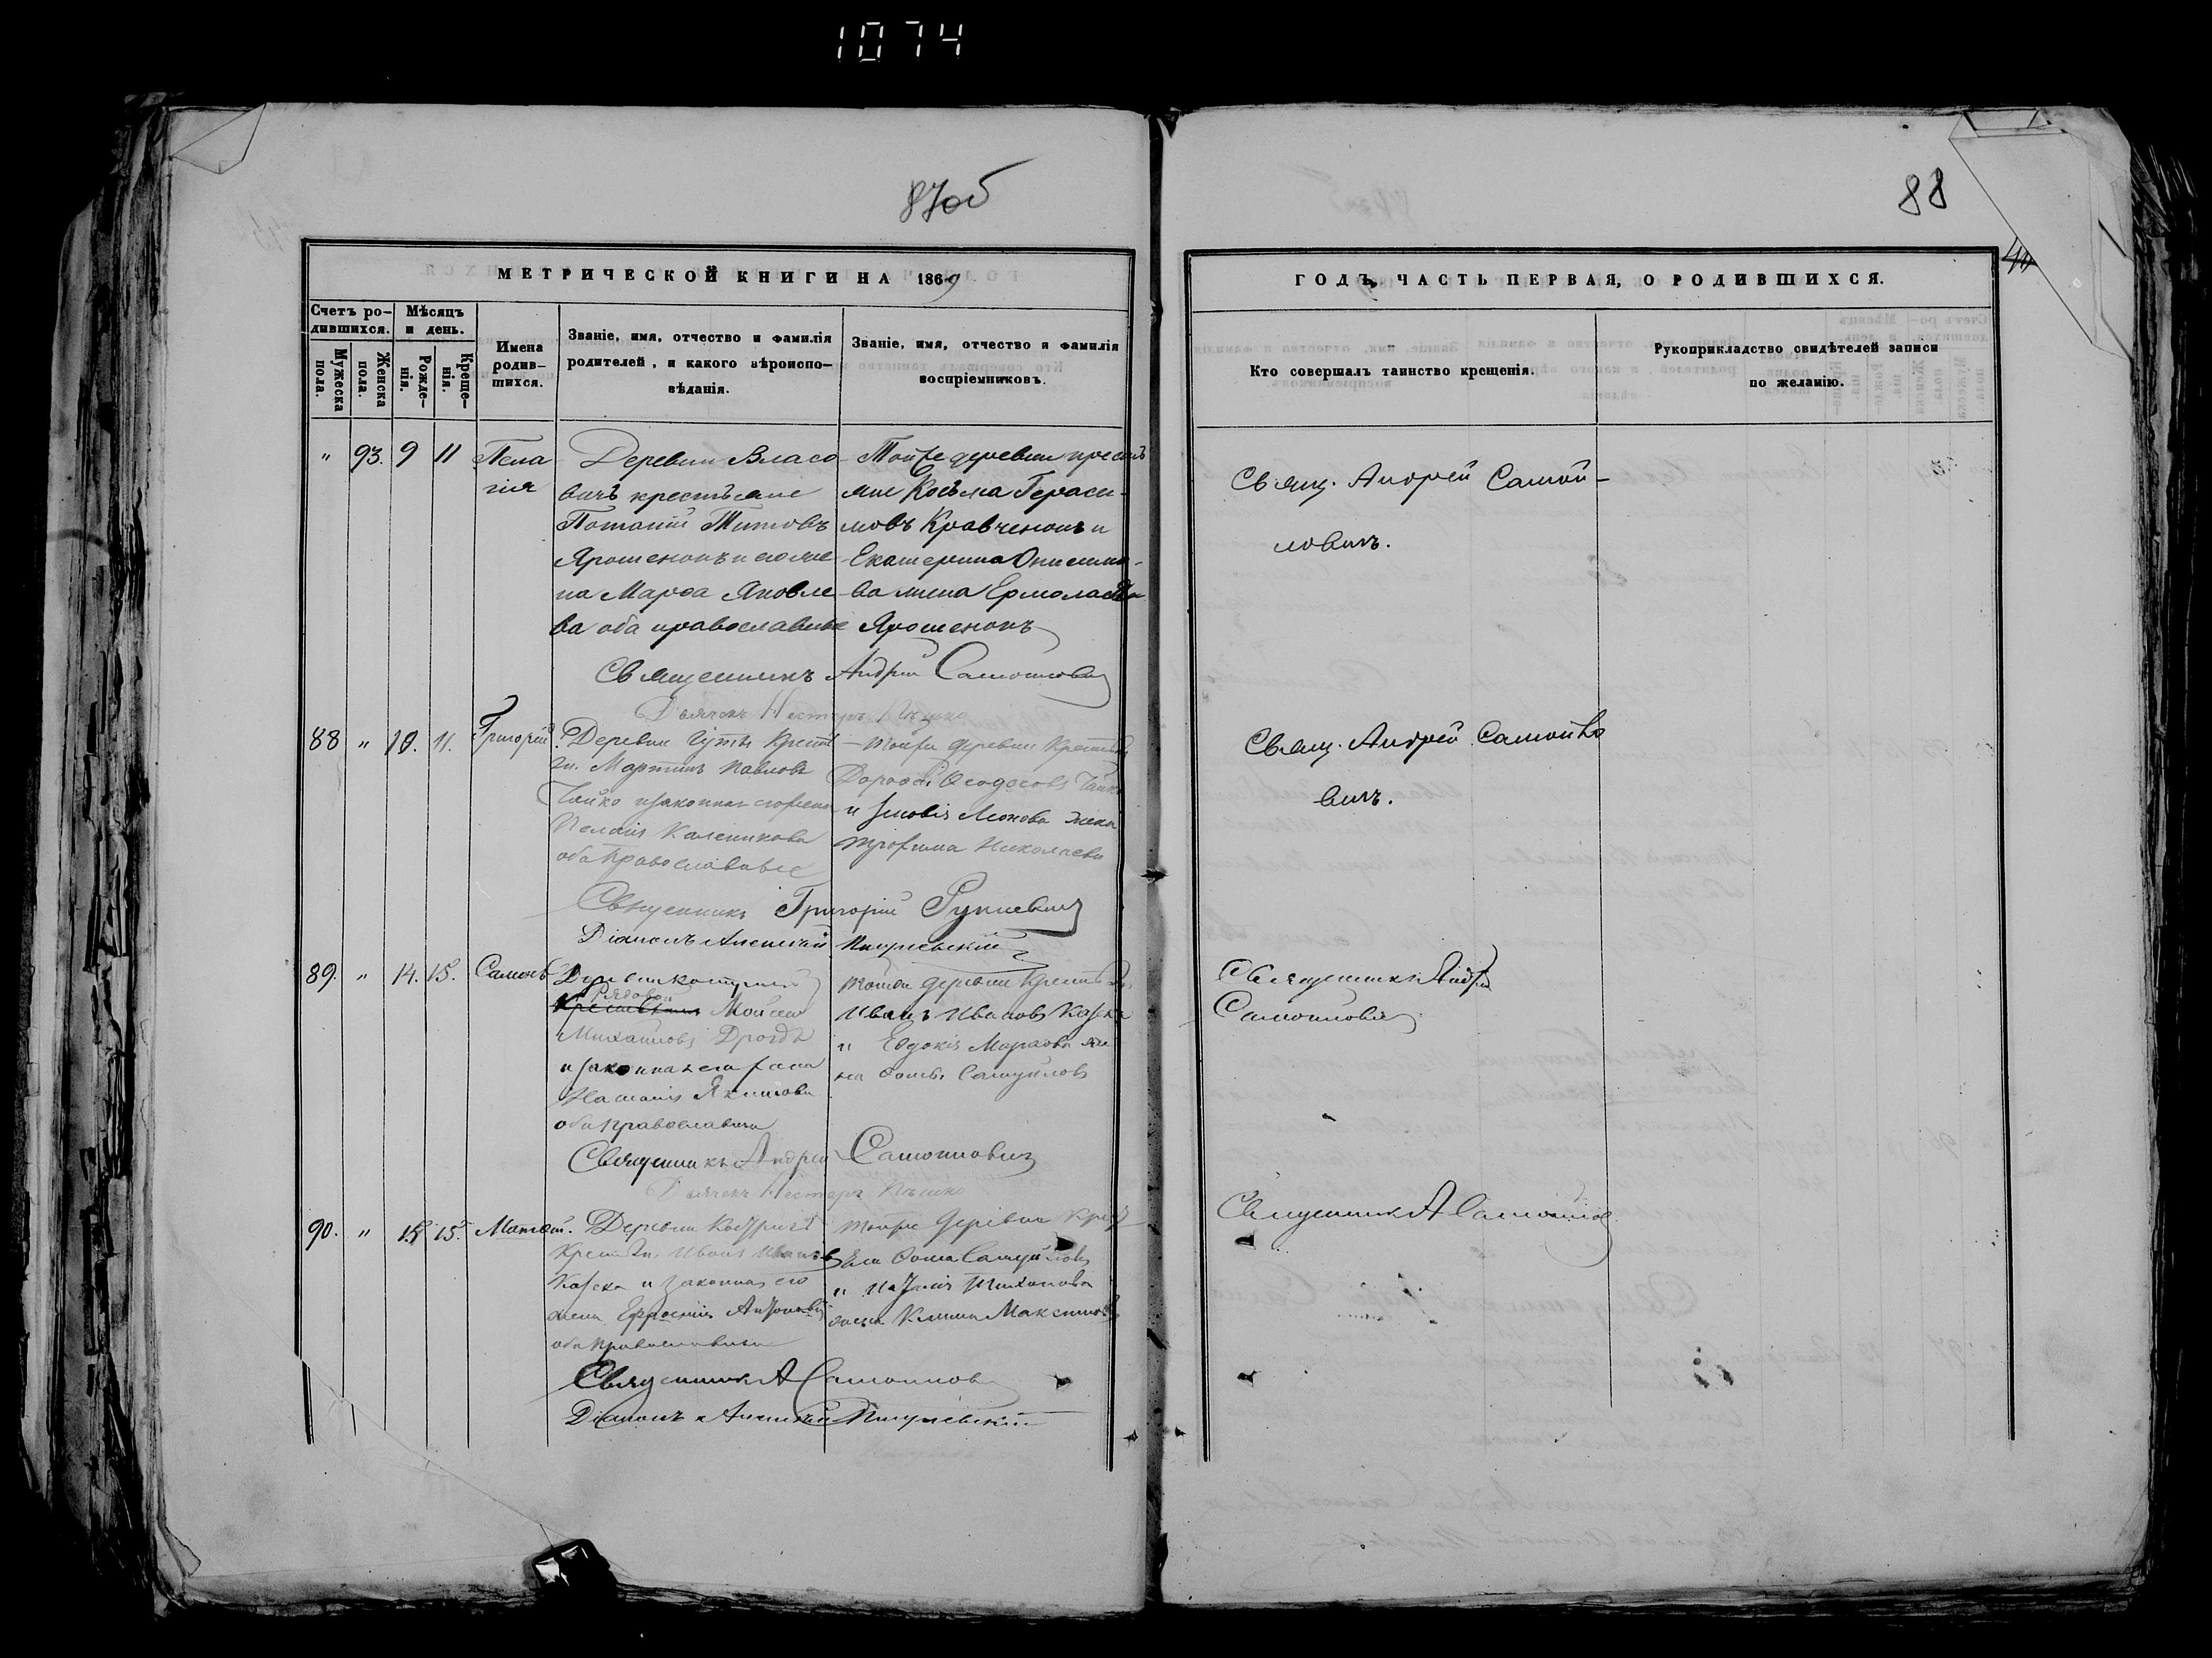 1074
87об
88
МЕТРИЧЕСКОЙ КНИГИ НА 1869
Счетъ ро-
дившихся.
Мѣсяцъ
и день.
Мужеска
пола.
Женска
пола.
Рожде-
нія.
Креще-
нія.
Имена
родив-
шихся.
Званіе, имя, отчество и фамилія
родителей, и какого вѣроиспо-
вѣданія.
Званіе, имя, отчество и фамилія
воспріемниковъ.
ГОДЪ, ЧАСТЬ ПЕРВАЯ, О РОДИВШИХСЯ.
Кто совершалъ таинство крещенія.
Рукоприкладство свидѣтелей записи
по желанію.
" 93. 9 11
Пела
гія
Деревни Власо
вичъ крестьяне
Потапій Титовъ
Ярошенокъ и его же
на Марѳа Яковле
ва оба православные
Тойже деревни кресть
яне Косьма Гераси-
мовъ Кравченокъ и
Екатерина Онисимо-
ва жена Ермолая
Ярошенокъ
Свящ. Андрей Самой-
ловичъ.
Священникъ Андрей Самойловичъ
Дьячекъ Несторъ
88 " 10. 11.
Григорій
Деревни Гуты Крест
Мартинъ Павловъ
Чайко и законная его жена
Пелагія Каленикова
оба Православные
Тойже деревни
Ѳеодосовъ Чайко
и Зиновія Леонова жена
Трофима Николаева
Свящ. Андрей Самойло
вичъ.
Священникъ Григорій
Діаконъ Алексѣй
89. " 14. 15.
Самонъ
Деревни
Рядовой
Мойсей
Михайловъ Дроздъ
и законная его жена
Наталія Якимова
оба православные
Тойже деревни
Иванъ Ивановъ Казека
и Евдокія Маркова же
на Ѳомы Самуйлова
Священникъ Андрей
Самойловичъ
Священникъ Андрей Самойловичъ
Дьячекъ Несторъ
90. " 15 15.
Матѳей.
Деревни
Иванъ Ивановъ
Казека и законная его
жена Ефросинія Антонова
оба православные
Тойже деревни
Ѳома Самуйловъ
и Наталія Тихонова
жена Клима Максимова
Священникъ А Самойлов
Священникъ А Самойлов
Діаконъ Алексѣй